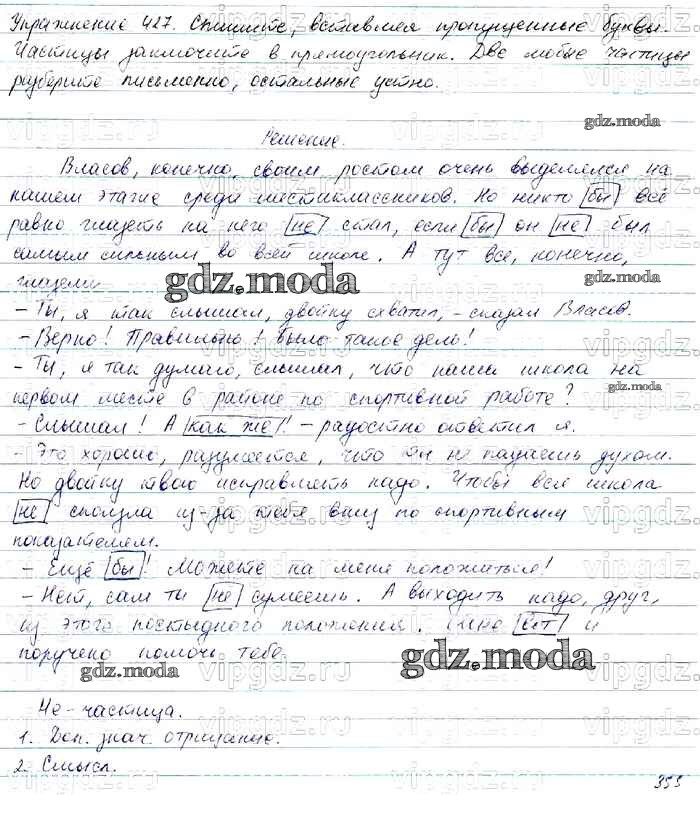 Упражнение 427. Спишите, вставляя пропущенные буквы.
Частицы заключите в прямоугольник. Две любые частицы
разберите письменно, остальные устно.
gdz.moda
Решение.
Власов, конечно, своим ростом очень выделялся на
нашем этаже среди шестиклассников. Но никто бы всё
равно глазеть на него не стал, если бы он не был
самым сильным во всей школе. А тут все, конечно,
глазели
gdz.moda
gdz.moda
- Ты, я так слышал, двойку схватил, - сказал Власов.
- Верно! Правильно! Было такое дело!
- Ты, я так думаю, слышал, что наша школа на
первом месте в районе по спортивной работе?
- Слышал! А как же! - радостно ответил я.
- Это хорошо, разумеется, что ты не падаешь духом.
Но двойку твою исправлять надо. Чтобы вся школа
не сползла из-за тебя вниз по спортивным
показателям.
- Ещё бы! Можете на меня положиться!
- Нет, сам ты не сумеешь. А выходить надо, друг,
из этого постыдного положения. Мне вот и
поручено помочь тебе.
gdz.moda
gdz.moda
Не - частица.
1. Доп. знач. отрицание.
2. Смысл.
353